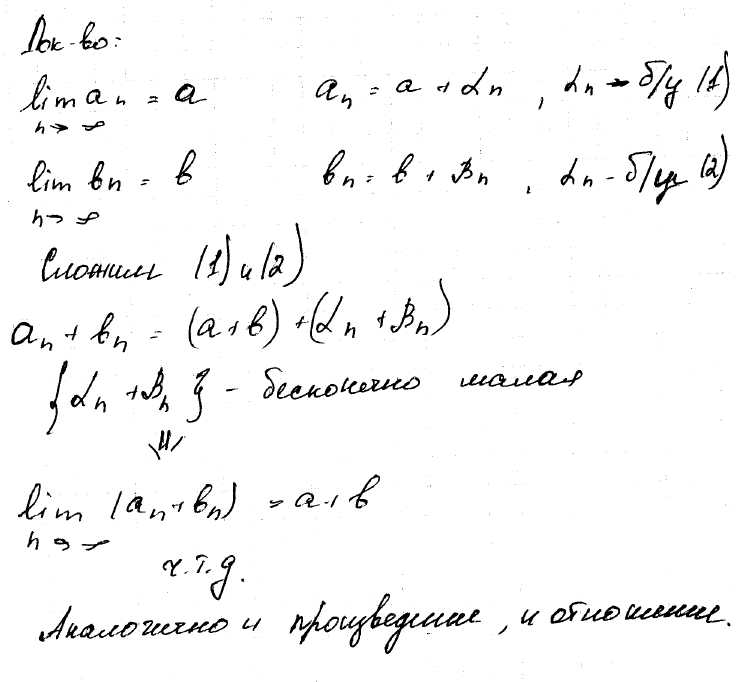 Док-во:
lim aₙ = a aₙ = a + αₙ , αₙ - б/м (1)
n→∞
lim bₙ = b bₙ = b + βₙ , αₙ - б/м (2)
n→∞
Сложим (1) и (2)
aₙ + bₙ = (a+b) + (αₙ + βₙ)
{αₙ + βₙ} - бесконечно малая
⇓
lim (aₙ+bₙ) = a+b
n→∞
ч.т.д.
Аналогично и произведение, и отношение.